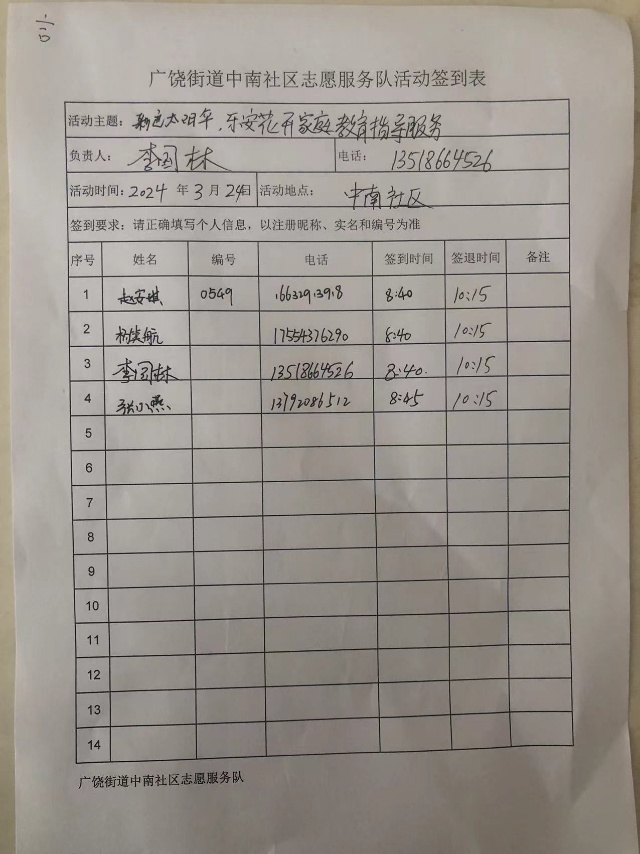 广饶街道中南社区志愿服务队活动签到表
活动主题：乐安花开家庭教育指导服务
负责人：李国林 电话：13518664526
活动时间：2024 年 3 月 24日 活动地点：中南社区
签到要求：请正确填写个人信息，以注册昵称、实名和编号为准
序号 姓名 编号 电话 签到时间 签退时间 备注
1 赵安琪 0549 16632913918 8:40 10:15
2 17554376290 8:40 10:15
3 李国林 13518664526 8:40 10:15
4 张小燕 13792086512 8:45 10:15
5
6
7
8
9
10
11
12
13
14
广饶街道中南社区志愿服务队